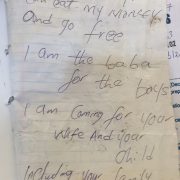 eat my MONEY
And go free
I am the baba
for the boys
I am Coming for your
Wife And your
child
Including your family